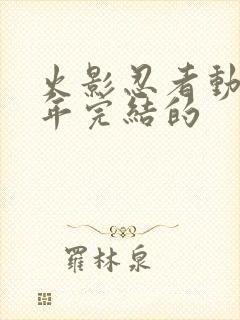 火影忍者動
年完結的
羅林泉